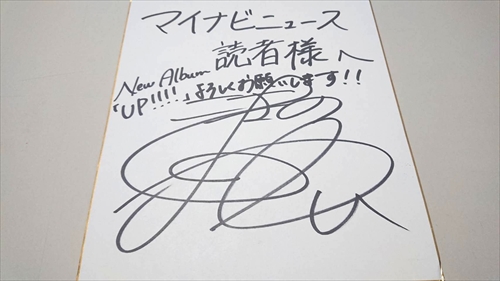 マイナビニュース
読者様へ
New Album
「UP!!!!」よろしくお願いします!!